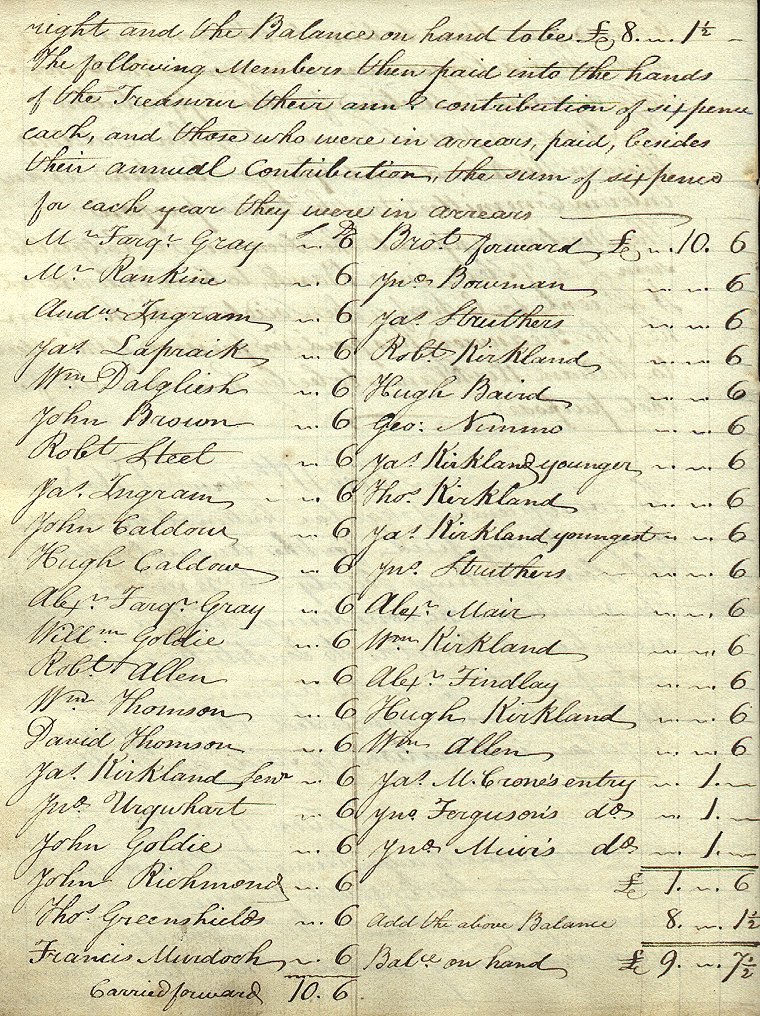 right and the Balance on hand to be £ 8. „ 1½
The following Members then paid into the hands
of the Treasurer their annl. contribution of sixpence
each, and those who were in arrears, paid, besides
their annual Contribution, the sum of sixpence
for each year they were in arrears
Mr. Farqr. Gray „ 6
Mr. Rankine „ 6
Andw. Ingram „ 6
Jas. Lapraik „ 6
Wm. Dalgliesh „ 6
John Brown „ 6
Robt. Steel „ 6
Jas. Ingram „ 6
John Caldow „ 6
Hugh Caldow „ 6
Alexr. Farqr. Gray „ 6
Willm. Goldie „ 6
Robt. Allen „ 6
Wm. Thomson „ 6
David Thomson „ 6
Jas. Kirkland Senr „ 6
Jno. Urquhart „ 6
John Goldie „ 6
John Richmond „ 6
Thos. Greenshields „ 6
Francis Murdoch „ 6
Carried forward 10. 6
Brot. forward £ „ 10. 6
Jno. Bowman „ „ 6
Jas. Struthers „ „ 6
Robt. Kirkland „ „ 6
Hugh Baird „ „ 6
Geo: Nimmo „ „ 6
Jas. Kirkland younger „ „ 6
Thos. Kirkland „ „ 6
Jas. Kirkland youngest „ „ 6
Jno. Struthers „ „ 6
Alexr. Mair „ „ 6
Wm. Kirkland „ „ 6
Alexr. Findlay „ „ 6
Hugh Kirkland „ „ 6
Wm. Allen „ „ 6
Jas. McCrone's entry „ 1. „
Jno. Ferguson's do. „ 1. „
Jno. Muir's do. „ 1. „
£ 1. „ 6
Add the above Balance 8. „ 1½
Balce. on hand £ 9. „ 7½